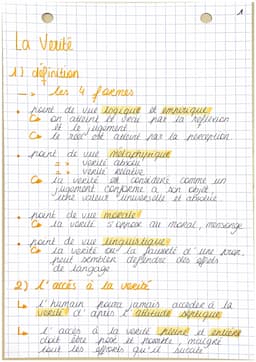 1
La Vérité
1) définition
→ les 4 formes
• point de vue logique et empirique
on atteint le vrai par la réflexion
et le jugement
le réel est atteint par la perception
• point de vue métaphysique
= vérité absolue
= vérité relative
la vérité est considéré comme un
jugement conforme à son objet,
une valeur universelle et absolue
• point de vue morale
la vérité s'oppose au moral, mensonge
• point de vue linguistique
la vérité ou la fausseté d'une prop.
peut sembler dépendre des effets
de langage
2) l'accès à la vérité
l'humain pourra jamais accéder à la
vérité d'après l'attitude sceptique
l'accès à la vérité pleine et entière
doit être posé et promise, malgré
tous les efforts qu'il suscite